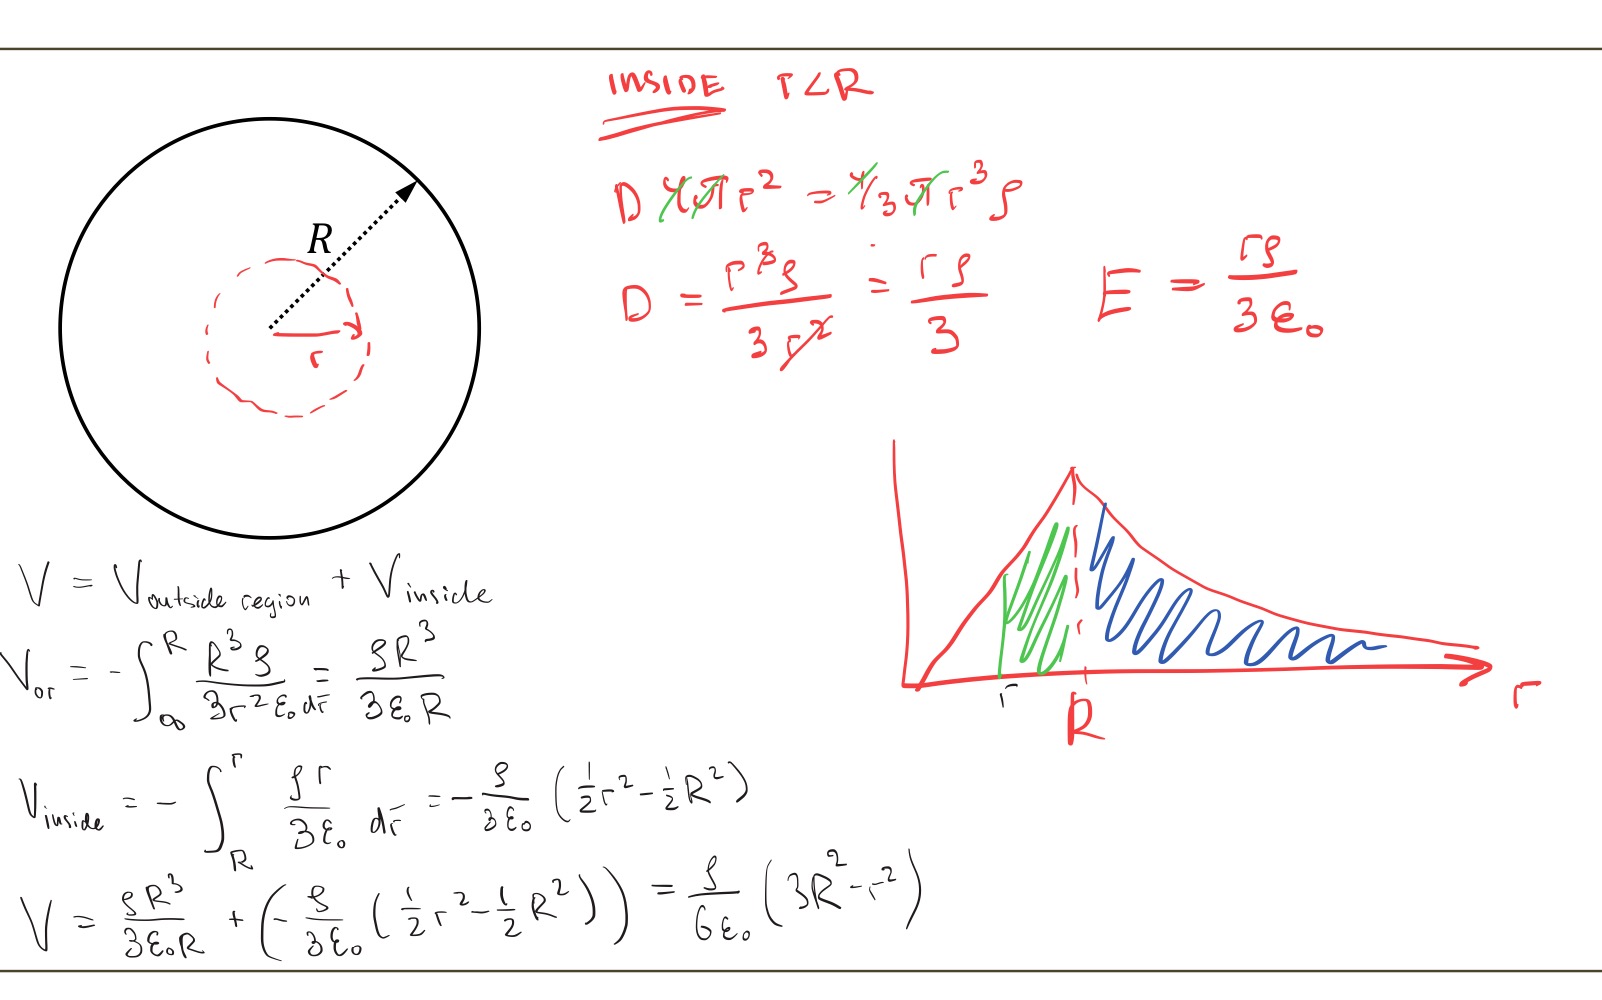 INSIDE r<R
R
r
D 4πr² = 4/3 πr³ρ
D = r³ρ / 3r² = rρ / 3
E = rρ / 3ε₀
r R r
V = V outside region + V inside
V or = -∫_∞^R R³ρ / 3r²ε₀ dr = ρR³ / 3ε₀R
V inside = -∫_R^r ρr / 3ε₀ dr = -ρ/3ε₀ (½r² - ½R²)
V = ρR³ / 3ε₀R + (-ρ/3ε₀ (½r² - ½R²)) = ρ/6ε₀ (3R² - r²)